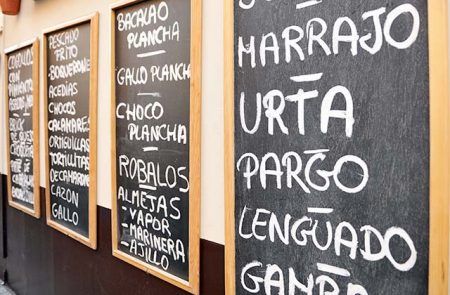 COGOLLOS
CON
PIMIENTO
BRICK
PESCADO
FRITO
-BOQUERONE
ACEDIAS
CHOCOS
CALAMARES
ORTIGUILLAS
TORTILLITAS
DE CAMARONE
CAZON
GALLO
BACALAO
PLANCHA
GALLO PLANCH
CHOCO
PLANCHA
ROBALOS
ALMEJAS
-VAPOR
-MARINERA
-AJILLO
MARRAJO
URTA
PARGO
LENGUADO
GAMBA